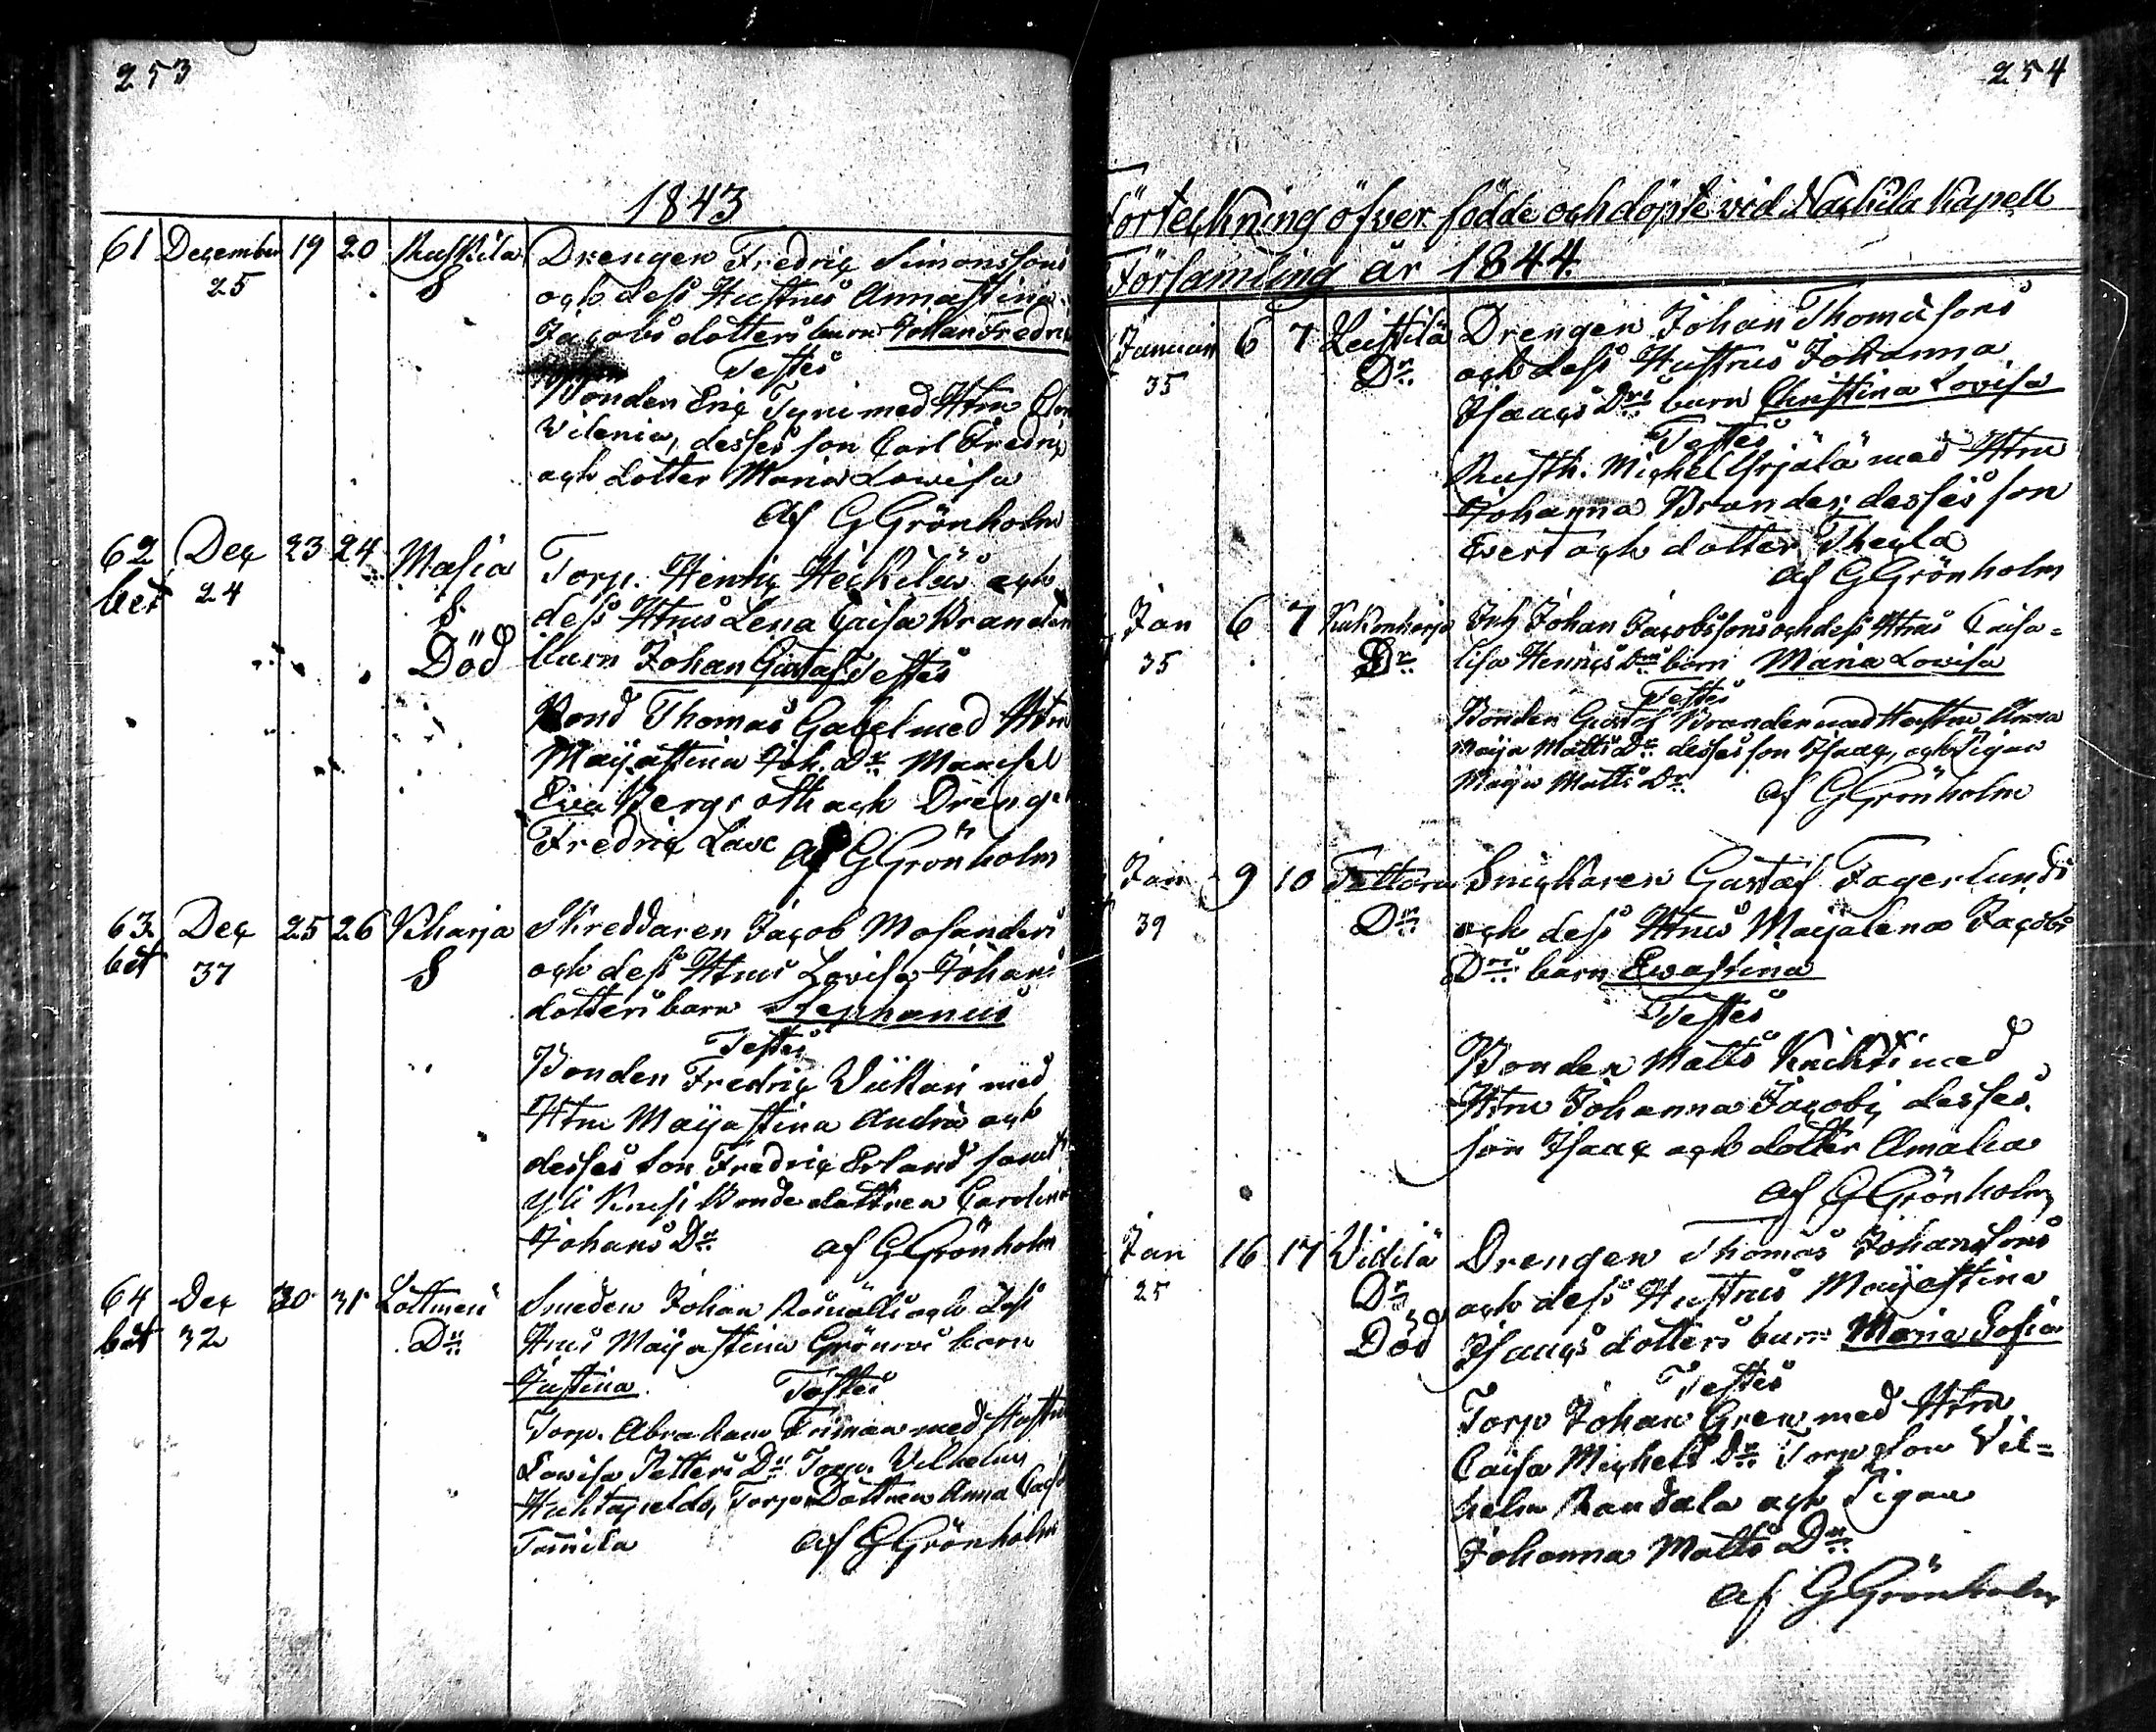 253
1843
61 December 19 20 Ruskila Drengen Fredric Simonssons
25 S och dess Hustrus Annastina
Jacobs dotters barn Johan Fredric
Testes
Bonden Eric Tyni med Hstru
Wilenia, desses son Carl Fredric
och dotter Maria Lowisa
af G Grönholm
62 Dec 23 24 Masia Torp. Henric Heickiläs och
bet 24 S dess Hstrus Lena Caisa Brander
Död barn Johan Gustaf Testes
Bond Thomas Gabel med Hstru
Maijastina Joh. Dr Mamsel
Eva Bergroth och Dreng
Fredric Lax af G Grönholm
63 Dec 25 26 Viharja Skreddaren Jacob Mosanders
bet 37 S och dess Hstrus Lovisa Johans
dotters barn Stephanus
Testes
Bonden Fredric Viikari med
Hstru Maijastina Andrä och
desses son Fredric Erland samt
Yli Knesi Bonde dottren Carolina
Johans Dr af G Grönholm
64 Dec 30 31 Lottmeri Smeden Johan och dess
bet 32 Dr Hrus Maijastina Grönros barn
Justina Testes
Torp. Abraham Friman med Hustru
Lowisa Petters Dr Torp. Vilhelm
Torp. Dottren Anna Caisa
Tomila af G Grönholm
254
Förteckning öfver födde och döpte vid Nackila Kapell
Församling år 1844.
Januari 6 7 Leistilä Drengen Johan Thomæsons
35 Dr och dess Hustrus Johanna
Isaacs Drs barn Christina Lovisa
Testes
Rusth. Michel Yrjälä med Hstru
Johanna Brander, desses son
Evert och dotter Thecla
af G Grönholm
Jan 6 7 Kukonharja Inh Johan Jacobssons och dess Hstrus Caisa-
35 Dr lisa Henrics Drs barn Maria Lowisa
Testes
Bonden Gustaf Brander med Hustru Anna
Maija Matts Dr desses son Isaac, och Pigan
Maija Matts Dr af G Grönholm
Jan 9 10 Tattara Snickaren Gustaf Fagerlunds
39 Dr och dess Hstrus Maijalena Jacobs
Drs barn Ewastina
Testes
Bonden Matts Knichti med
Hstru Johanna Jacobi, desses
son Isaac och dotter Amalia
af G Grönholm
Jan 16 17 Viitilä Drengen Thomas Johanssons
25 Dr och dess Hustrus Maijastina
Död Isaacs dotters barn Maria Sofia
Testes
Torp Johan Gren med Hstru
Caisa Michels Dr Torp. son Vil-
helm Randala och Pigan
Johanna Matts Dr
af G Grönholm